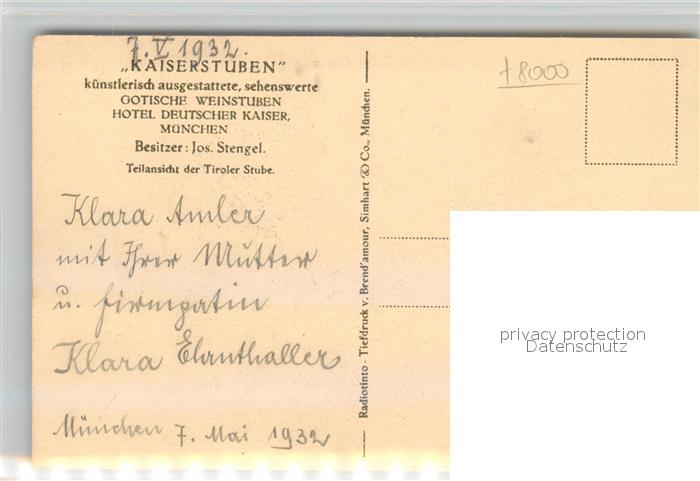 7. V 1932.
„KAISERSTUBEN”
künstlerisch ausgestattete, sehenswerte
GOTISCHE WEINSTUBEN
HOTEL DEUTSCHER KAISER,
MÜNCHEN
Besitzer: Jos. Stengel.
Teilansicht der Tiroler Stube.
Klara Amler
mit Ihrer Mutter
u. Firmpatin
Klara Ehnthaller
München 7. Mai 1932
Radiotinto - Tiefdruck v. Brend'amour, Simhart & Co., München.
+8000
privacy protection
Datenschutz